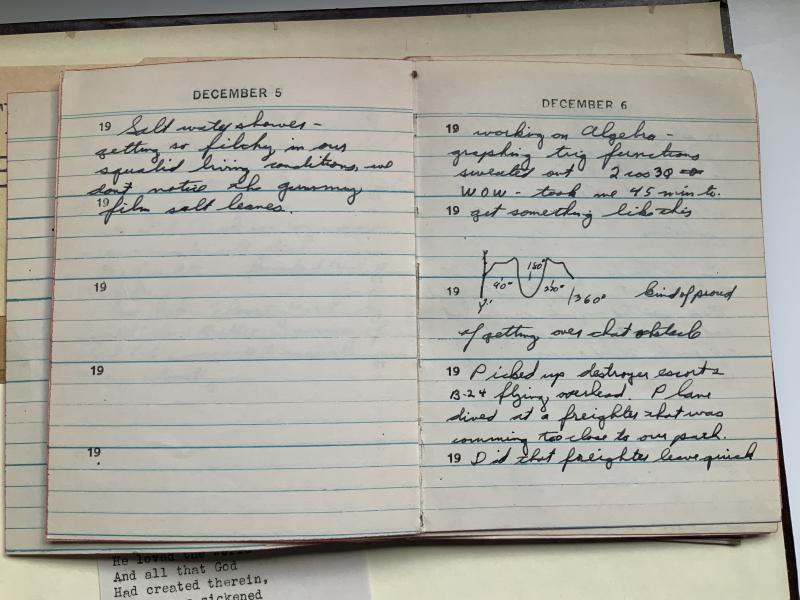 DECEMBER 5
19 Salt water showers -
getting so filthy in our
squalid living conditions, we
dont notice the gummy
19 film salt leaves.
19
19
19
DECEMBER 6
19 working on Algebra -
graphing trig functions
sweated out 2 cos 3θ
WOW - took me 45 min to.
19 get something like this
19 90° 180° 360° kind of proud
of getting over that obstacle
19 Picked up destroyer escorts
B-24 flying overhead. Plane
dived at a freighter that was
comming too close to our path.
19 Did that freighter leave quick
He loved the
And all that God
Had created therein,
sickened